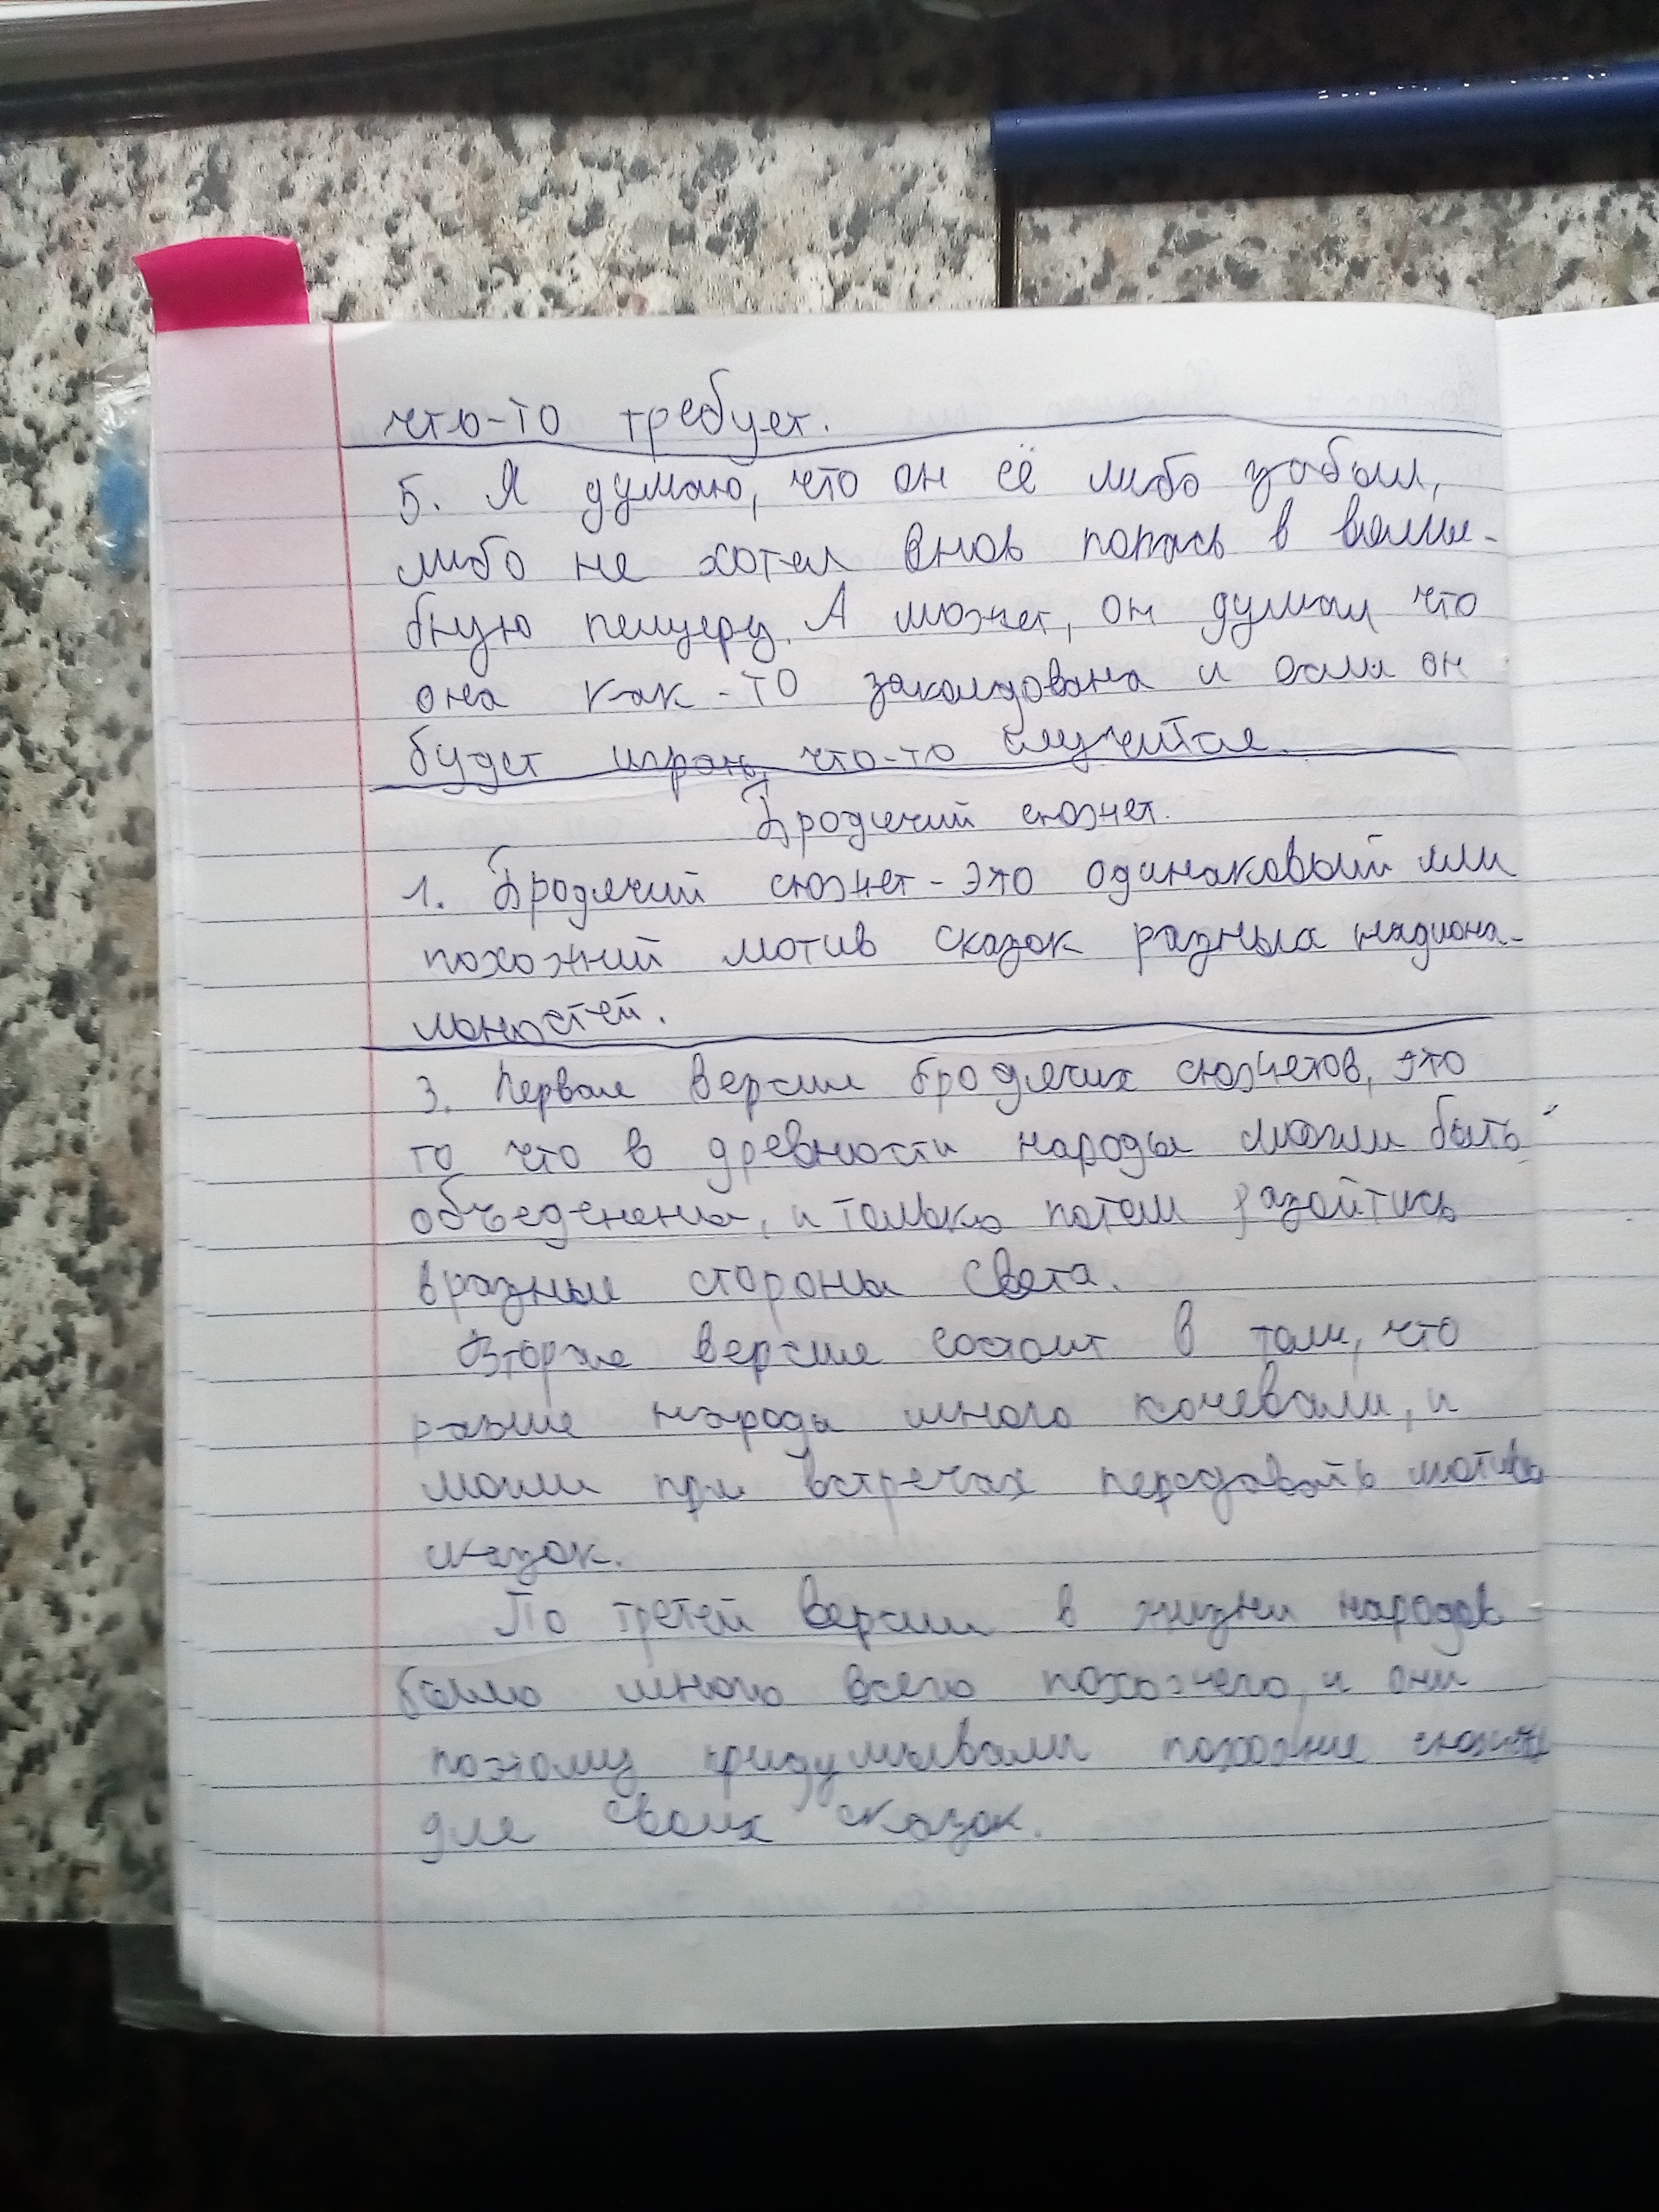 что-то требует.
5. Я думаю, что он её либо забыл,
либо не хотел вновь попась в волше-
бную пещеру. А может, он думал что
она как-то заколдована и если он
будет играть, что-то случится.
Бродячий сюжет.
1. Бродячий сюжет - это одинаковый или
похожий мотив сказок разных национа-
льностей.
3. Первая версия бродячих сюжетов, это
то что в древности народы могли быть
объеденены, и только потом разойтись
в разные стороны света.
Вторая версия состоит в том, что
раньше народы много кочевали, и
могли при встречах передовать мотивы
сказок.
По третей версии в жизни народов
было много всего похожего, и они
поэтому придумывали похожие сюжеты
для своих сказок.